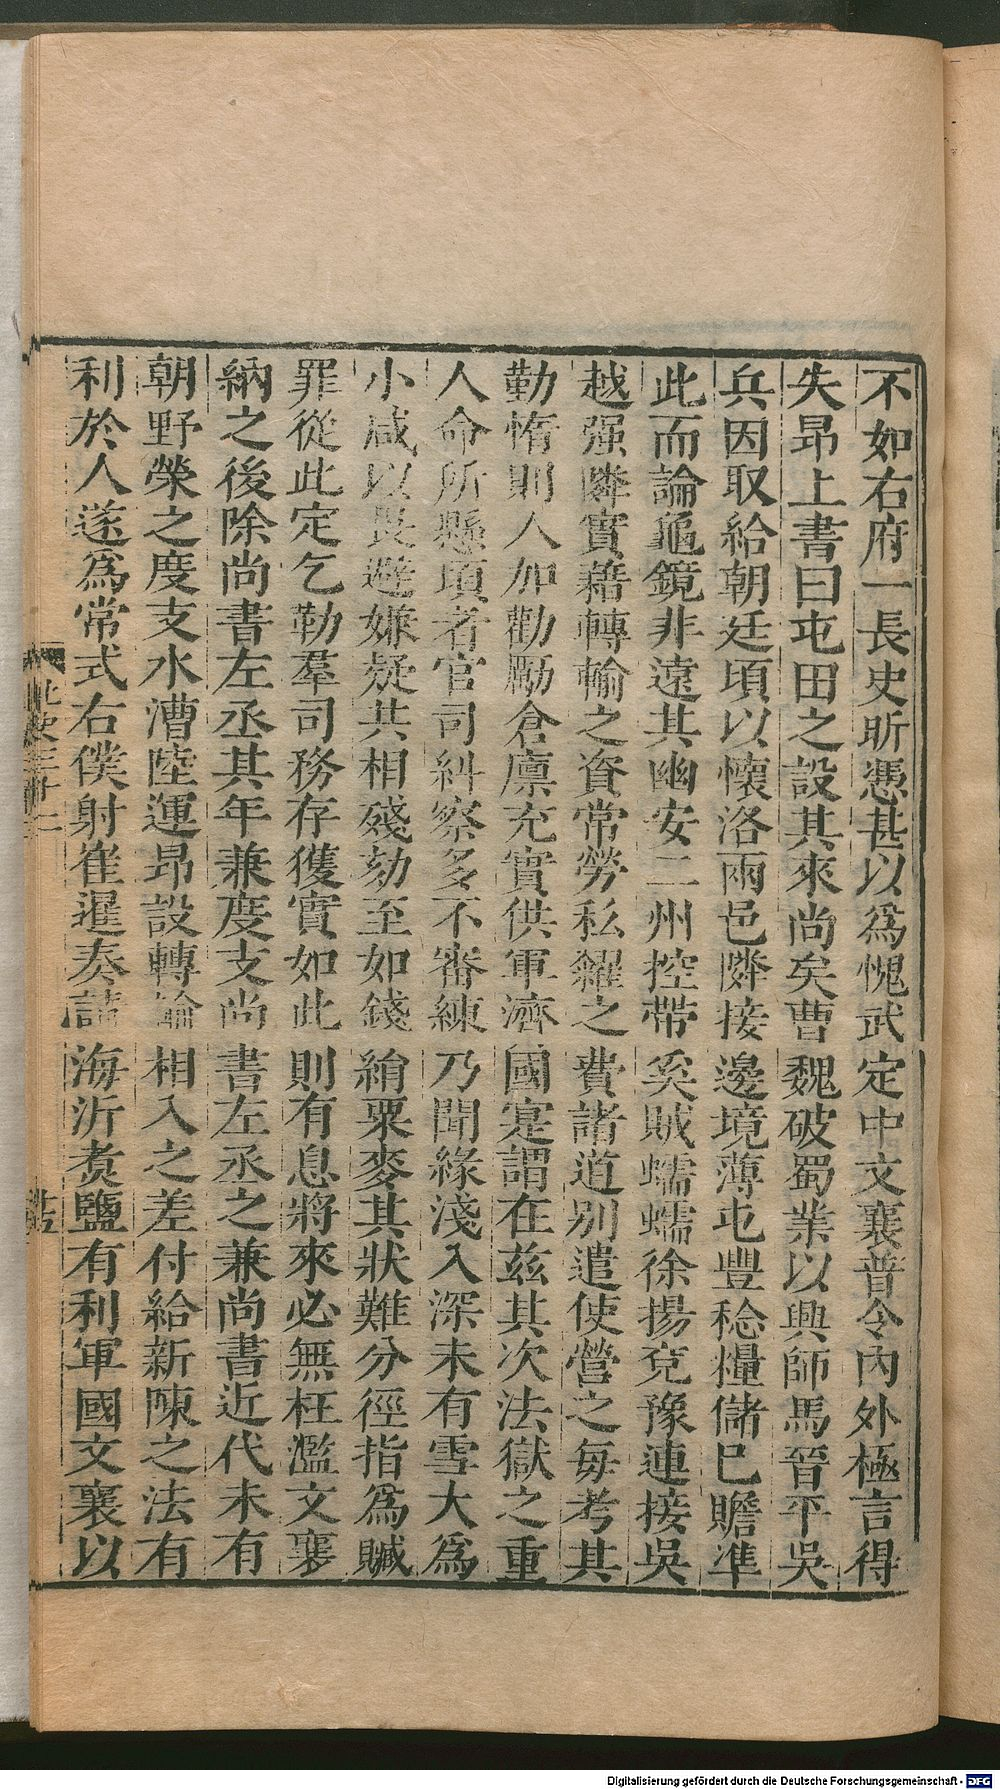 不如右府一長史昕憑甚以為愧武定中文襄普令內外極言得
失昂上書曰屯田之設其來尚矣曹魏破蜀業以興師馬晉平吳
兵因取給朝廷頃以懷洛兩邑隣接邊境薄屯豐稔糧儲巳贍準
此而論龜鏡非遠其幽安二州控帶奚賊蠕蠕徐揚兗豫連接吳
越强隣實藉轉輸之資常勞私糴之費諸道別遣使營之每考其
勤惰則人加勸勵倉廩充實供軍濟國寔謂在茲其次法獄之重
人命所懸頃者官司糾察多不審練乃聞緣淺入深未有雪大為
小咸以畏避嫌疑共相殘劾至如錢絹粟麥其狀難分徑指為贓
罪從此定乞勒羣司務存獲實如此則有息將來必無枉濫文襄
納之後除尚書左丞其年兼度支尚書左丞之兼尚書近代未有
朝野榮之度支水漕陸運昂設轉輸相入之差付給新陳之法有
利於人遂為常式右僕射崔暹奏請海沂煑鹽有利軍國文襄以
北史三十二
廿五
Digitalisierung gefördert durch die Deutsche Forschungsgemeinschaft - DFG